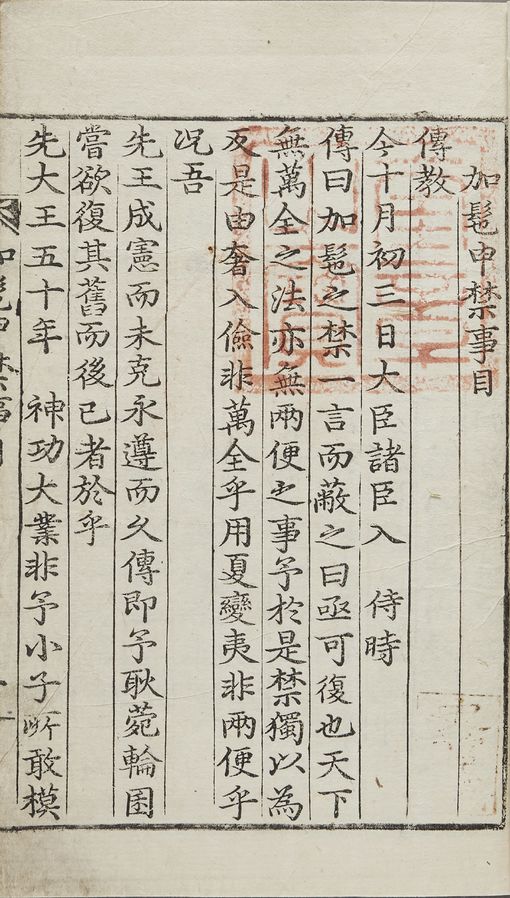 加髢申禁事目
傳教
今十月初三日大臣諸臣入 侍時
傳曰加髢之禁一言而蔽之曰亟可復也天下
無萬全之法亦無兩便之事予於是禁獨以為
反是由奢入儉非萬全乎用夏變夷非兩便乎
况吾
先王成憲而未克永遵而久傳即予耿菀輪囷
嘗欲復其舊而後已者於乎
先大王五十年 神功大業非予小子所敢模
加髢申禁事目 一